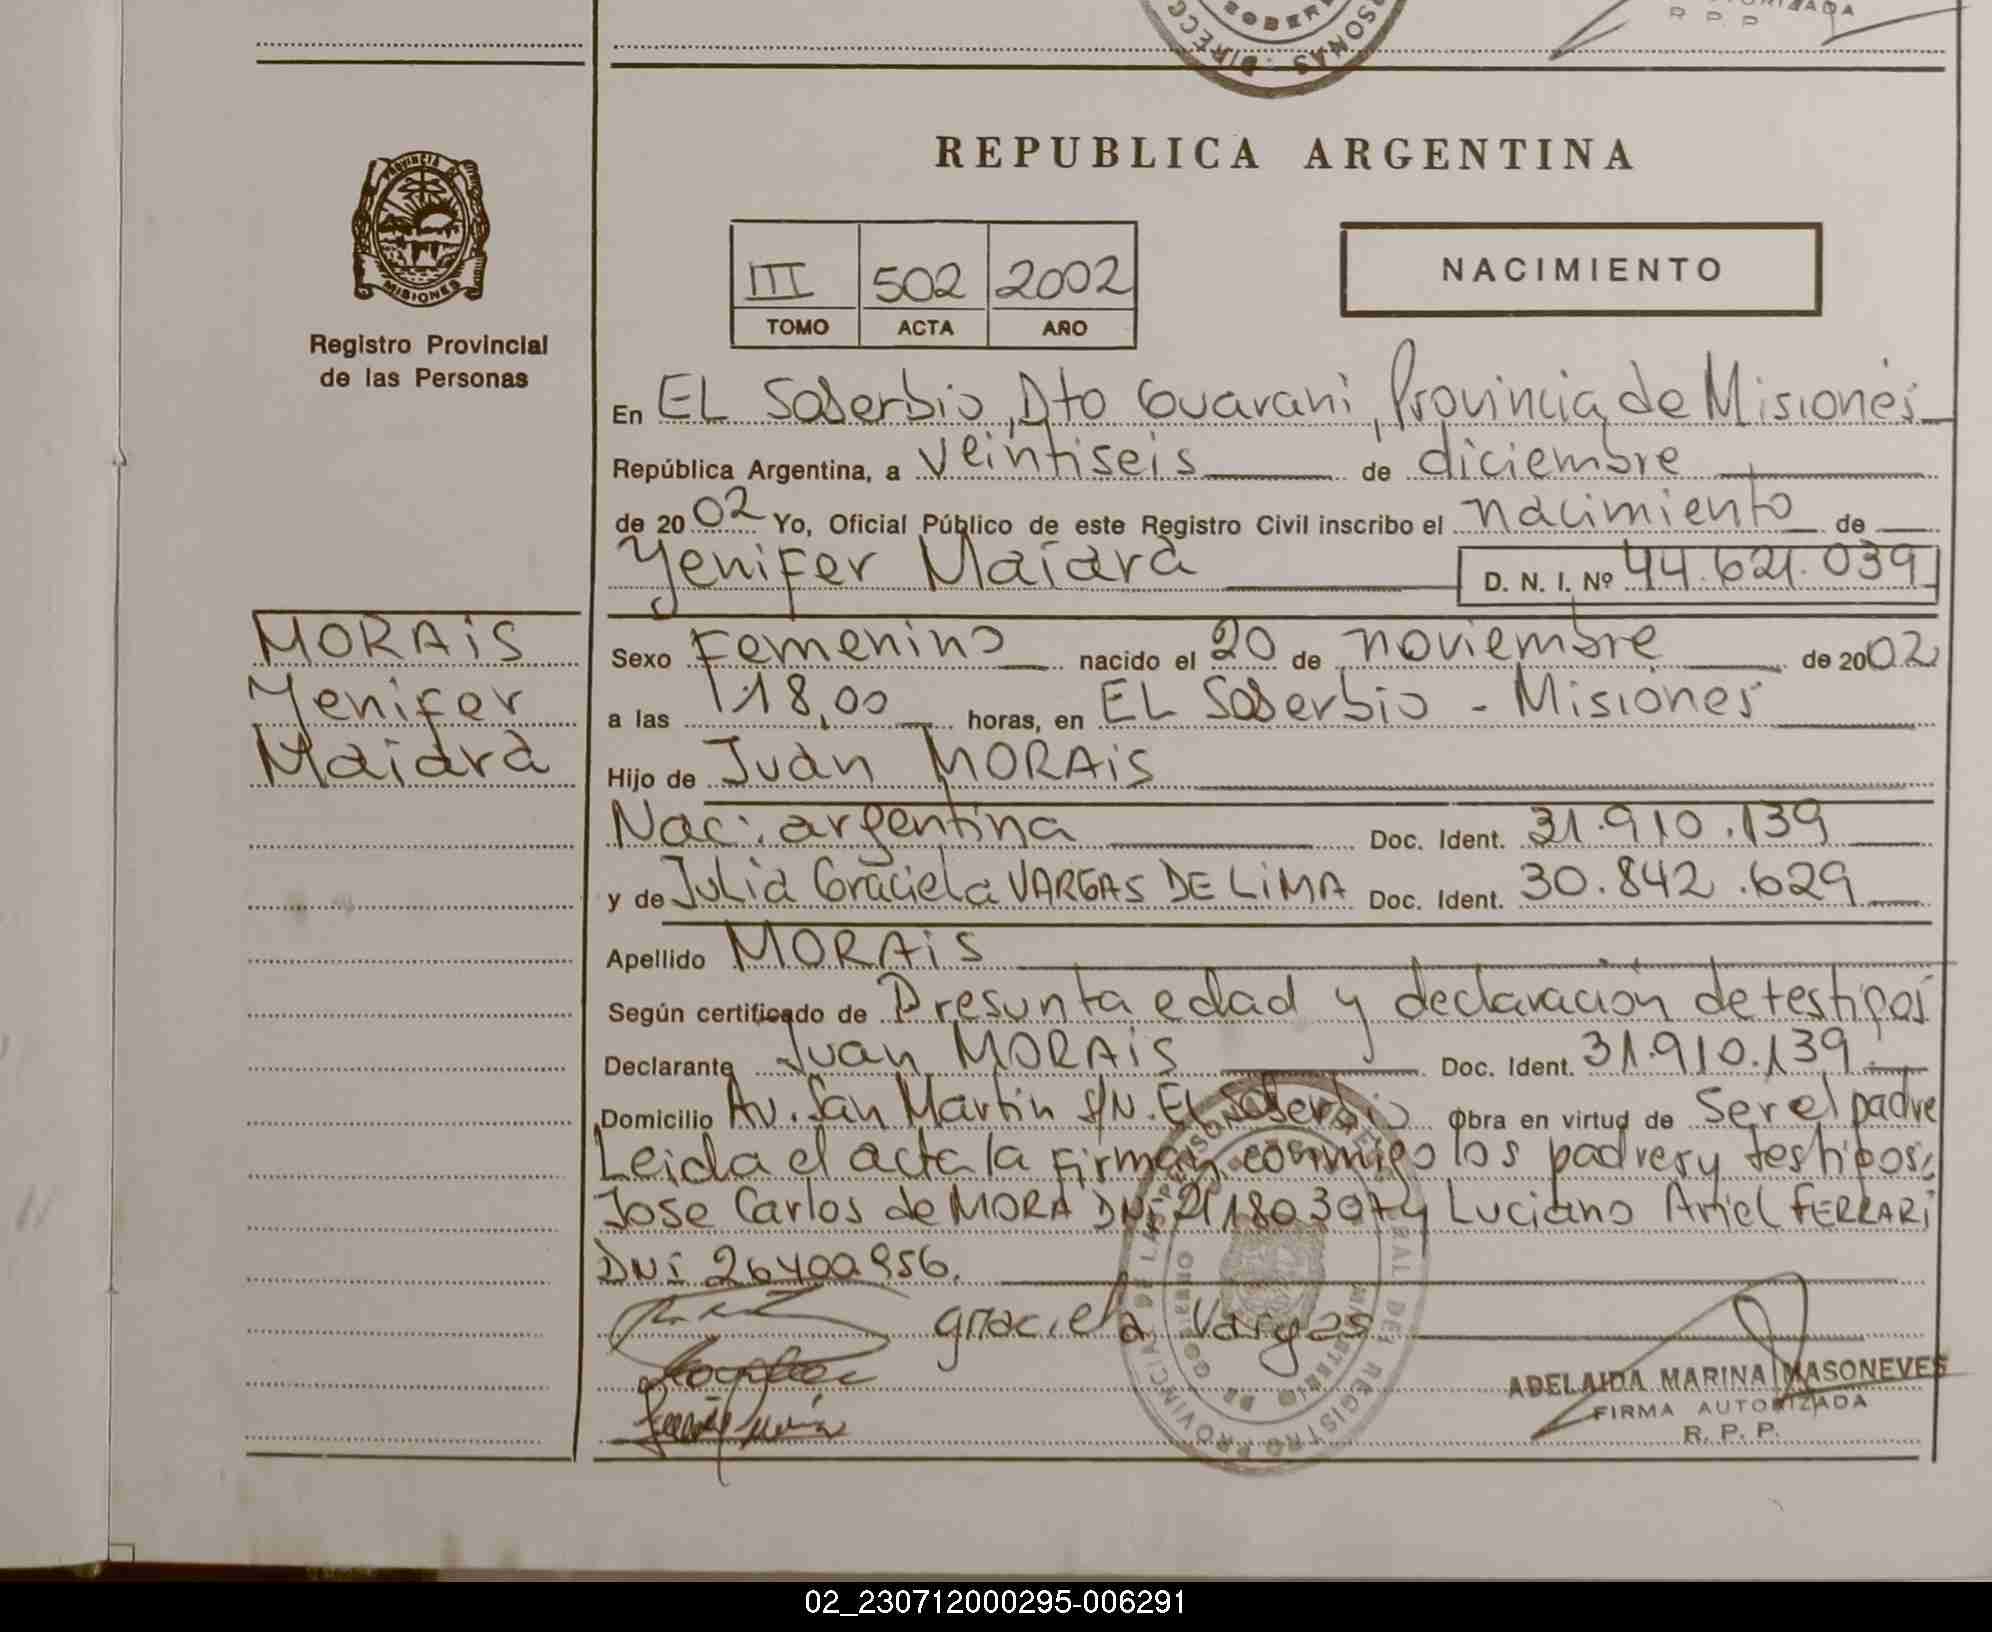 REPUBLICA ARGENTINA
PROVINCIA DE
MISIONES
Registro Provincial
de las Personas
III 502 2002
TOMO ACTA AÑO
NACIMIENTO
En EL Soberbio, Dto Guarani, Provincia de Misiones
República Argentina, a veintiseis de diciembre
de 2002 Yo, Oficial Público de este Registro Civil inscribo el nacimiento de
Yenifer Maiara D. N. I. Nº 44.621.039
MORAiS
Yenifer
Maiara
Sexo Femenino nacido el 20 de noviembre de 2002
a las 18,00 horas, en EL Soberbio - Misiones
Hijo de Juan MORAiS
Nac: argentina Doc. Ident. 31.910.139
y de Julia Graciela VARGAS DE LiMA Doc. Ident. 30.842.629
Apellido MORAiS
Según certificado de Presunta edad y declaracion de testigos
Declarante Juan MORAiS Doc. Ident. 31.910.139
Domicilio Av. San Martin S/N. EL Soberbio Obra en virtud de Ser el padre
Leida el acta la firman conmigo los padres y testigos:
Jose Carlos de MORA DNi 21180307 y Luciano Ariel FERRARi
DNi 26400956.
graciela Vargas
ADELAIDA MARINA MASONEVES
FIRMA AUTORIZADA
R. P. P.
02_230712000295-006291